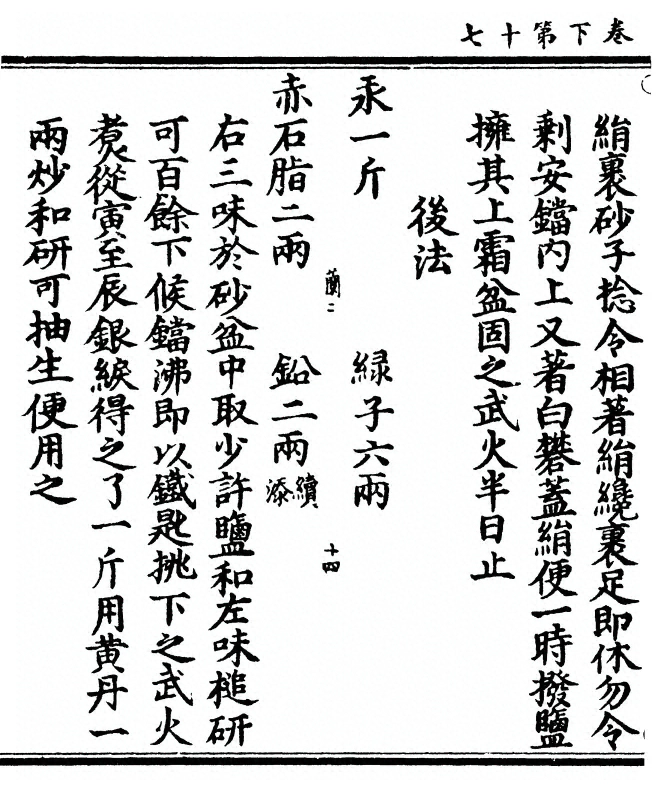 卷下第十七
絹裹砂子捻令相著絹纔裹足即休勿令
剩安鐺内上又著白礬蓋絹便一時撥鹽
擁其上霜盆固之武火半日止
後法
汞一斤 緑子六兩
蘭二 十四
赤石脂二兩 鉛二兩續添
右三味於砂盆中取少許鹽和左味槌研
可百餘下候鐺沸即以鐵匙挑下之武火
煑從寅至辰銀緱得之了一斤用黄丹一
兩炒和研可抽生便用之